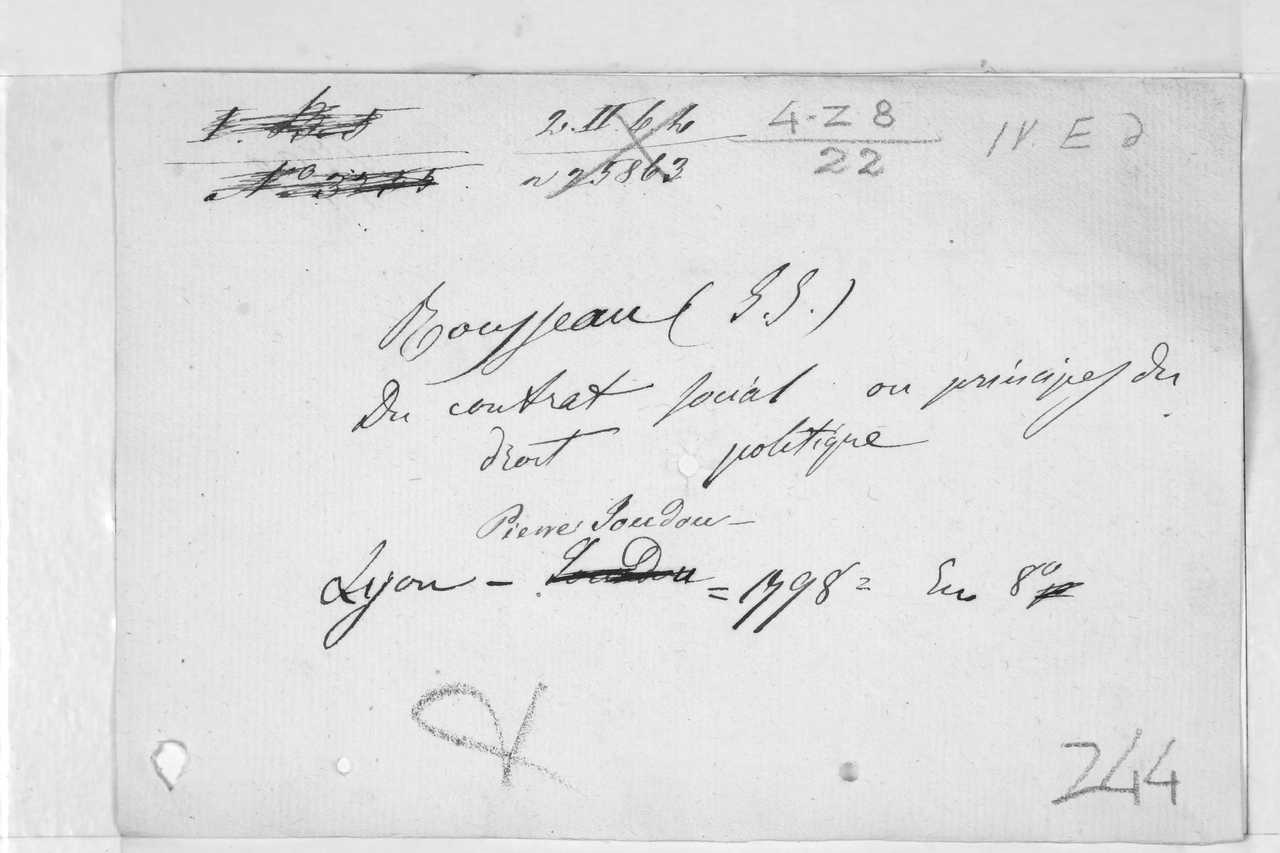 4-Z 8
22
IV. E d
25863
Rousseau (J.J.)
Du contrat social ou principes du
droit politique
Pierre Joudou
Lyon - = 1798 = En 8º
244